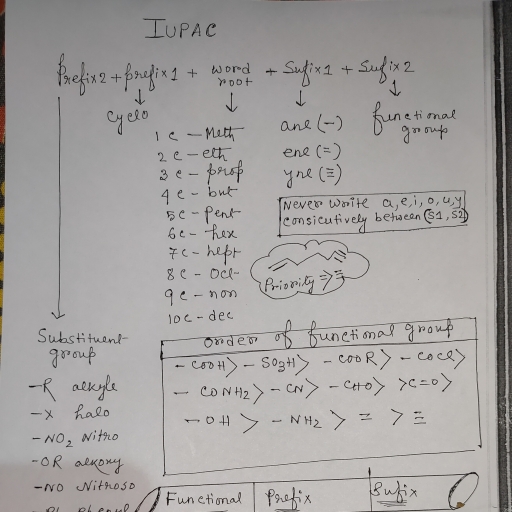 IUPAC
Prefix2 + prefix1 + word root + Sufix1 + Sufix2
Cyclo
functional group
1c - Meth
2c - eth
3c - prop
4c - but
5c - pent
6c - hex
7c - hept
8c - oct
9c - non
10c - dec
ane (-)
ene (=)
yne (≡)
Never write a,e,i,o,u,y
consicutively between (S1, S2)
Priority => ≡
Substituent
group
-R alkyle
-X halo
-NO2 Nitro
-OR alkoxy
-NO Nitroso
order of functional group
-COOH> -SO3H> -COOR> -COCl>
-CONH2> -CN> -CHO> >C=O>
-OH > -NH2 > = > ≡
Functional Prefix Sufix